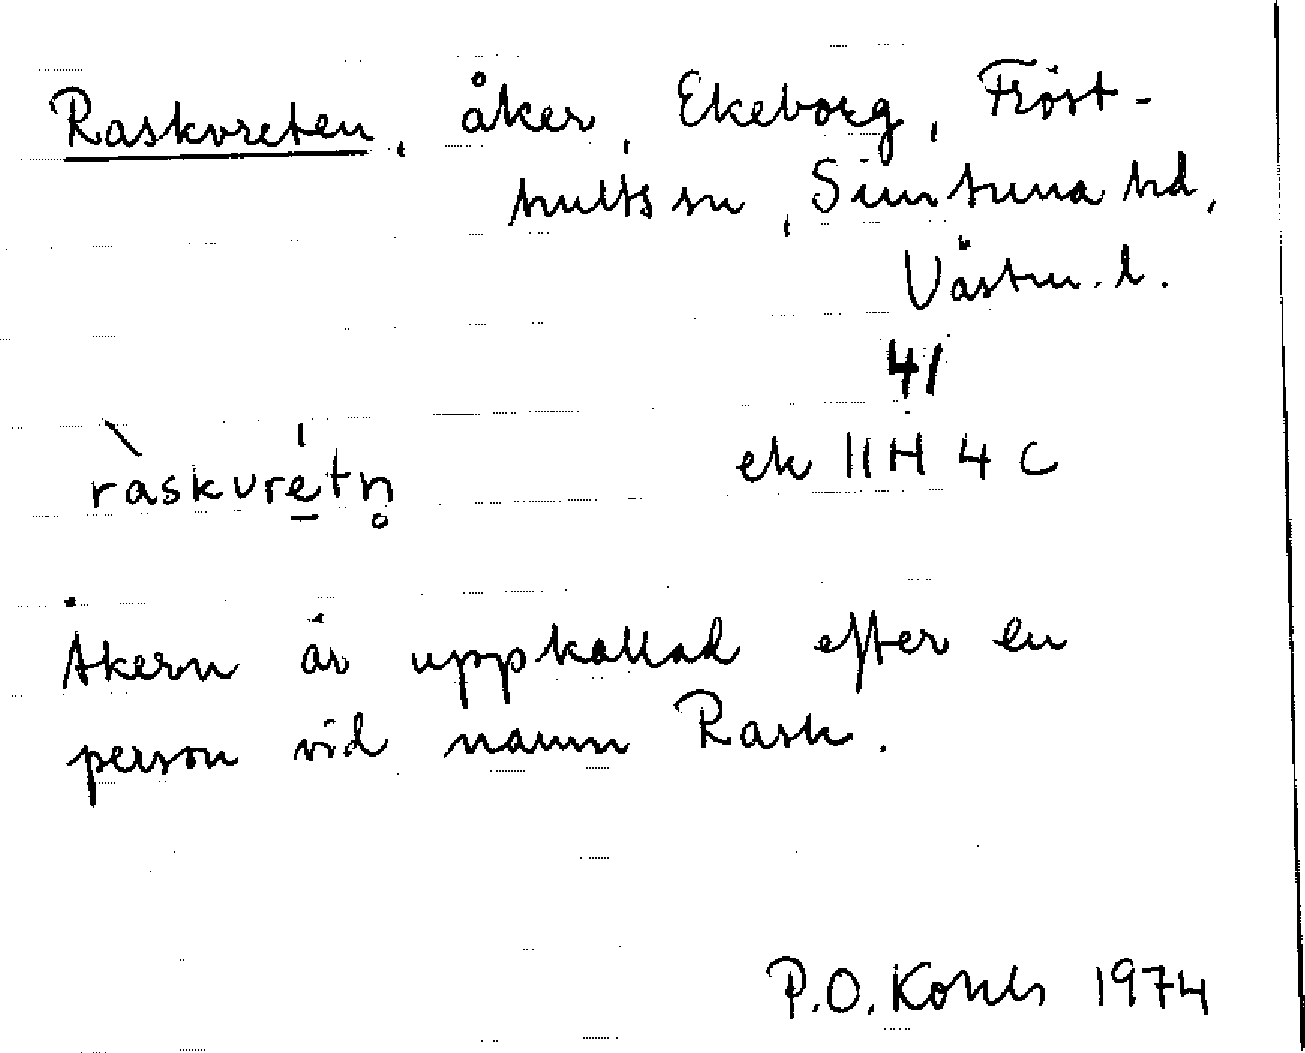 Raskvreten, åker, Ekeborg, Fröst-
hults sn, Simtuna hd,
Västm. l.
41
ràskvrétn̥
ek 11H 4 c
Åkern är uppkallad efter en
person vid namn Rask.
P.O. Kohls 1974